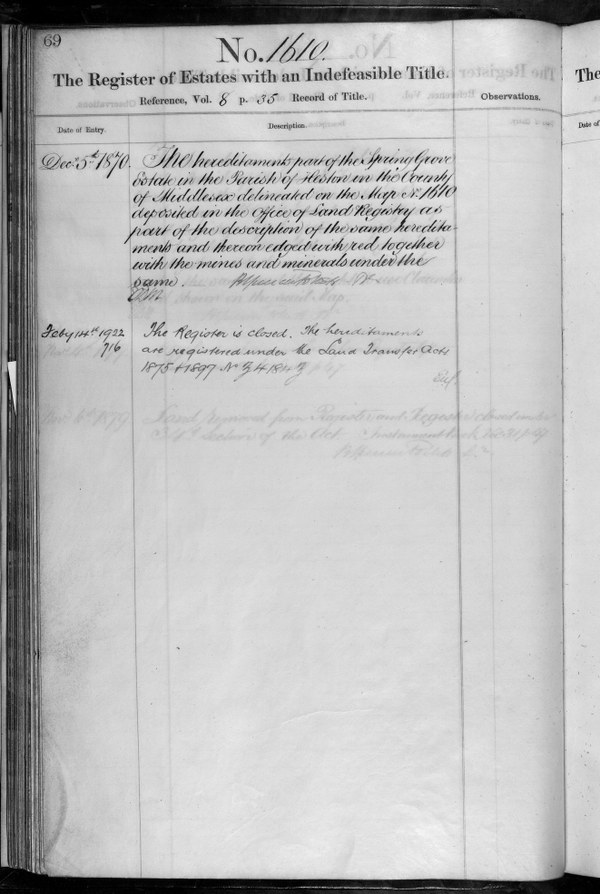 69
No. 1610.
The Register of Estates with an Indefeasible Title.
Reference, Vol. 8 p. 35 Record of Title.
Observations.
Date of Entry.
Description.
Dec. 5th 1870.
The hereditaments part of the Spring Grove
Estate in the Parish of Heston in the County
of Middlesex delineated on the Map No. 1610
deposited in the Office of Land Registry as
part of the description of the same heredita-
ments and thereon edged with red together
with the mines and minerals under the
same.
Feby 14th 1922
716
The Register is closed. The hereditaments
are registered under the Land Transfer Acts
1875 & 1897 No
The
Date of